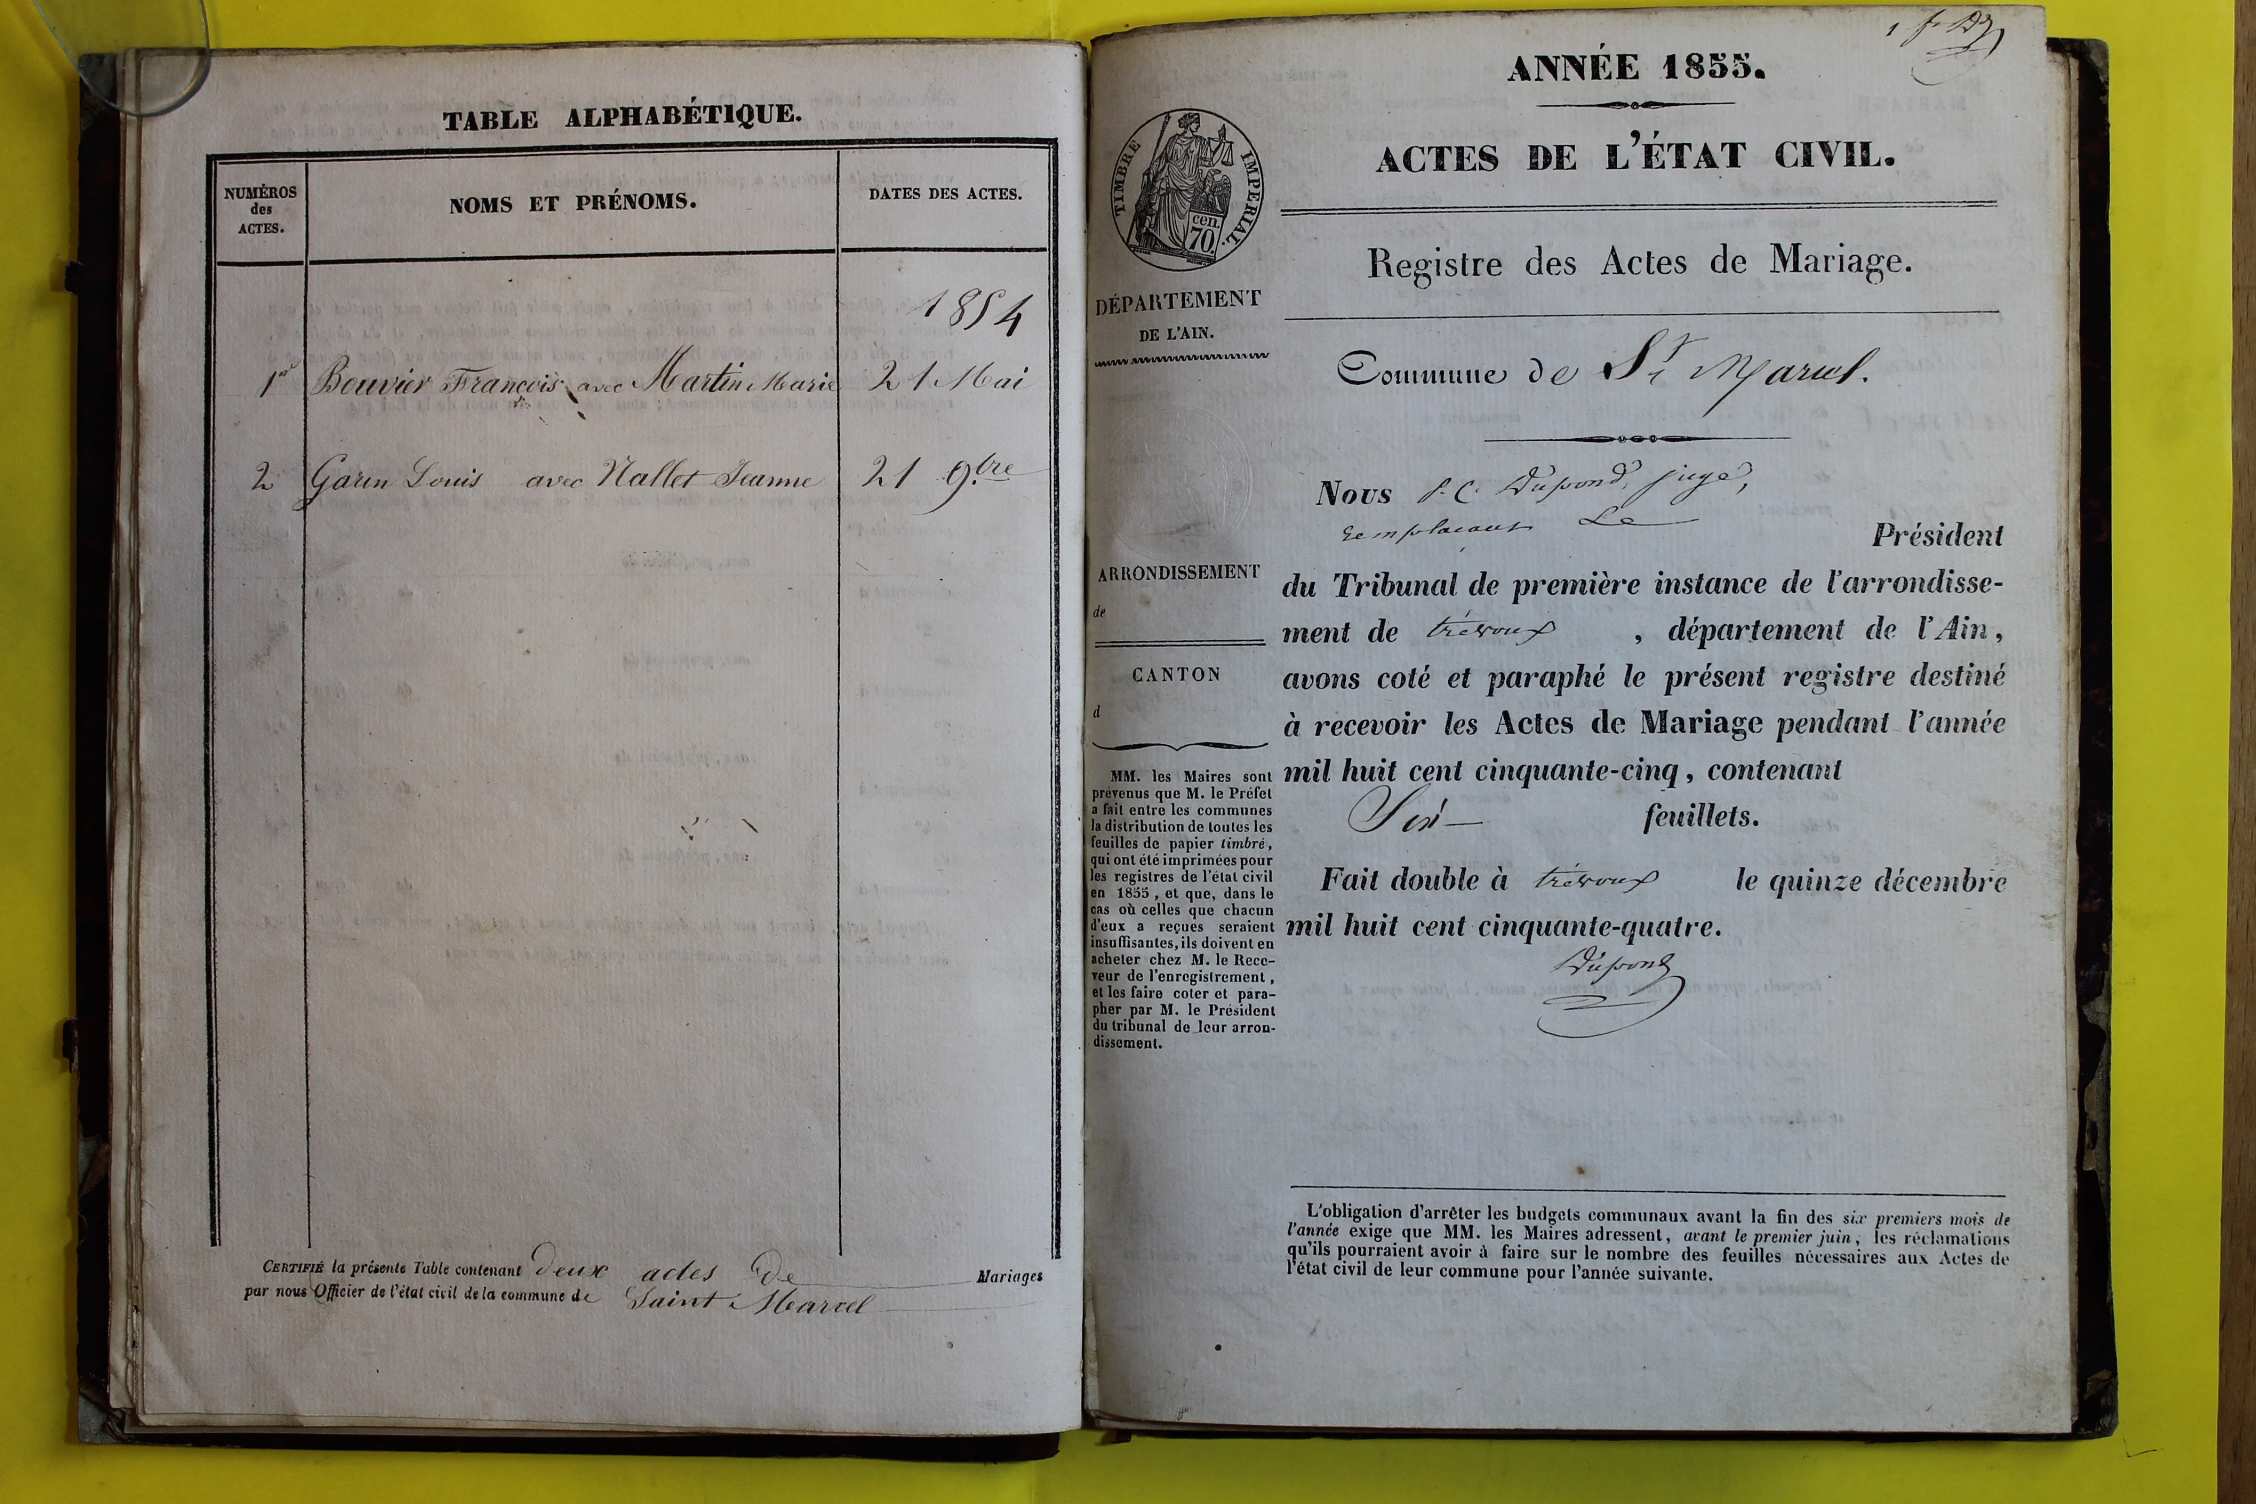 TABLE ALPHABÉTIQUE.
NUMÉROS
des
ACTES.
NOMS ET PRÉNOMS.
DATES DES ACTES.
1854
1er Bouvier François avec Martin Marie 21 Mai
2 Garin Louis avec Nallet Jeanne 21 9.bre
CERTIFIÉ la présente Table contenant deux actes de Mariages
par nous Officier de l'état civil de la commune de Saint Marcel
ANNÉE 1855.
ACTES DE L'ÉTAT CIVIL.
TIMBRE IMPERIAL.
cen.
70.
DÉPARTEMENT
DE L'AIN.
ARRONDISSEMENT
de
CANTON
d
MM. les Maires sont
prévenus que M. le Préfet
a fait entre les communes
la distribution de toutes les
feuilles de papier timbré,
qui ont été imprimées pour
les registres de l'état civil
en 1855, et que, dans le
cas où celles que chacun
d'eux a reçues seraient
insuffisantes, ils doivent en
acheter chez M. le Rece-
veur de l'enregistrement,
et les faire coter et para-
pher par M. le Président
du tribunal de leur arron-
dissement.
Registre des Actes de Mariage.
Commune de St Marcel.
Nous P. C. Dupond, juge,
remplaçant Le Président
du Tribunal de première instance de l'arrondisse-
ment de trévoux, département de l'Ain,
avons coté et paraphé le présent registre destiné
à recevoir les Actes de Mariage pendant l'année
mil huit cent cinquante-cinq, contenant
Six feuillets.
Fait double à trévoux le quinze décembre
mil huit cent cinquante-quatre.
Dupond
L'obligation d'arrêter les budgets communaux avant la fin des six premiers mois de
l'année exige que MM. les Maires adressent, avant le premier juin, les réclamations
qu'ils pourraient avoir à faire sur le nombre des feuilles nécessaires aux Actes de
l'état civil de leur commune pour l'année suivante.